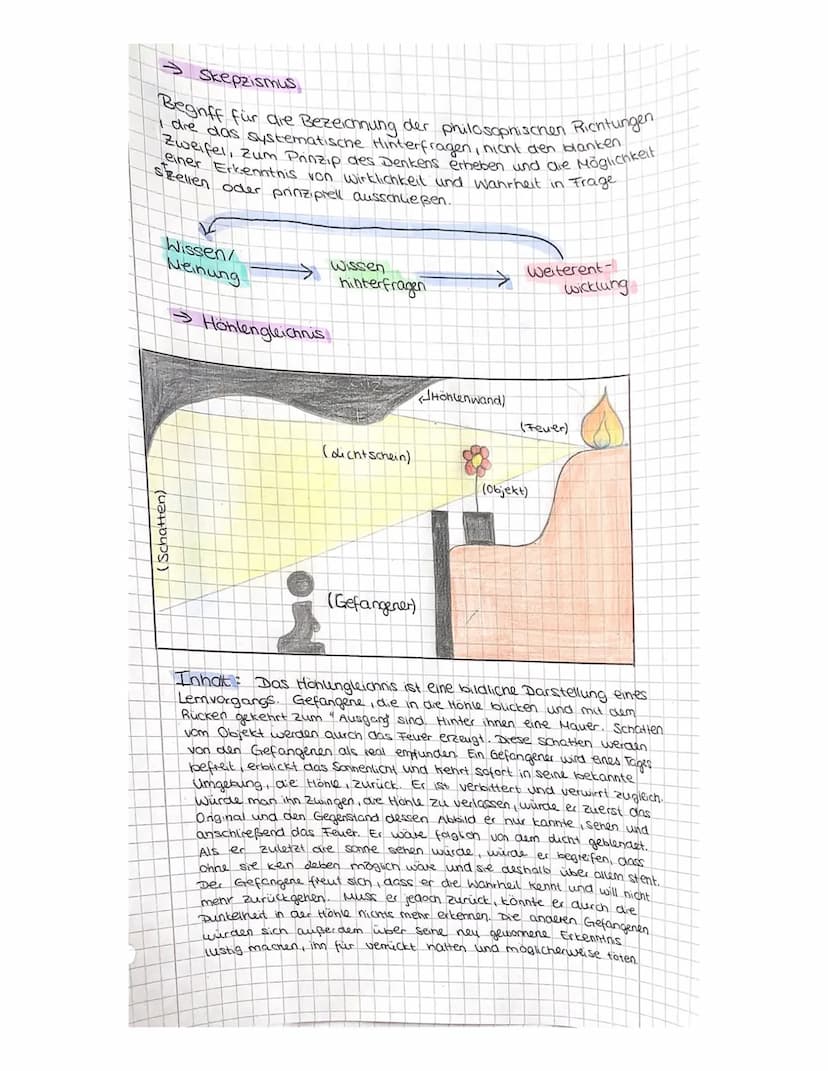 → Skepzismus
Begriff für die Bezeichnung der philosophischen Richtungen
, die das systematische Hinterfragen, nicht den blanken
Zweifel, zum Prinzip des Denkens erheben und die Möglichkeit
einer Erkenntnis von Wirklichkeit und Wahrheit in Frage
stellen oder prinzipiell ausschließen.
Wissen/
Meinung → wissen
hinterfragen → Weiterent-
wicklung
→ Höhlengleichnis
(Höhlenwand)
(Feuer)
(Lichtschein)
(Objekt)
(Schatten)
(Gefangener)
Inhalt: Das Höhlungleichnis ist eine bildliche Darstellung eines
Lernvorgangs. Gefangene, die in die Höhle blicken und mit dem
Rücken gekehrt zum "Ausgang" sind. Hinter ihnen eine Mauer. Schatten
vom Objekt werden durch das Feuer erzeugt. Diese Schatten werden
von den Gefangenen als real empfunden. Ein Gefangener wird eines Tages
befreit, erblickt das Sonnenlicht und kehrt sofort in seine bekannte
Umgebung, die Höhle, zurück. Er ist verbittert und verwirrt zugleich.
Würde man ihn zwingen, die Höhle zu verlassen, würde er zuerst das
Original und den Gegenstand dessen Abbild er nur kannte, sehen und
anschließend das Feuer. Er wäre folglich von dem Licht geblendet.
Als er zuletzt die Sonne sehen würde, würde er begreifen, dass
ohne sie kein Leben möglich wäre und sie deshalb über allem steht.
Der Gefangene freut sich, dass er die Wahrheit kennt und will nicht
mehr zurückgehen. Muss er jedoch zurück, könnte er durch die
Dunkelheit in der Höhle nichts mehr erkennen. Die anderen Gefangenen
würden sich außerdem über seine neu gewonnene Erkenntnis
lustig machen, ihn für verrückt halten und möglicherweise töten